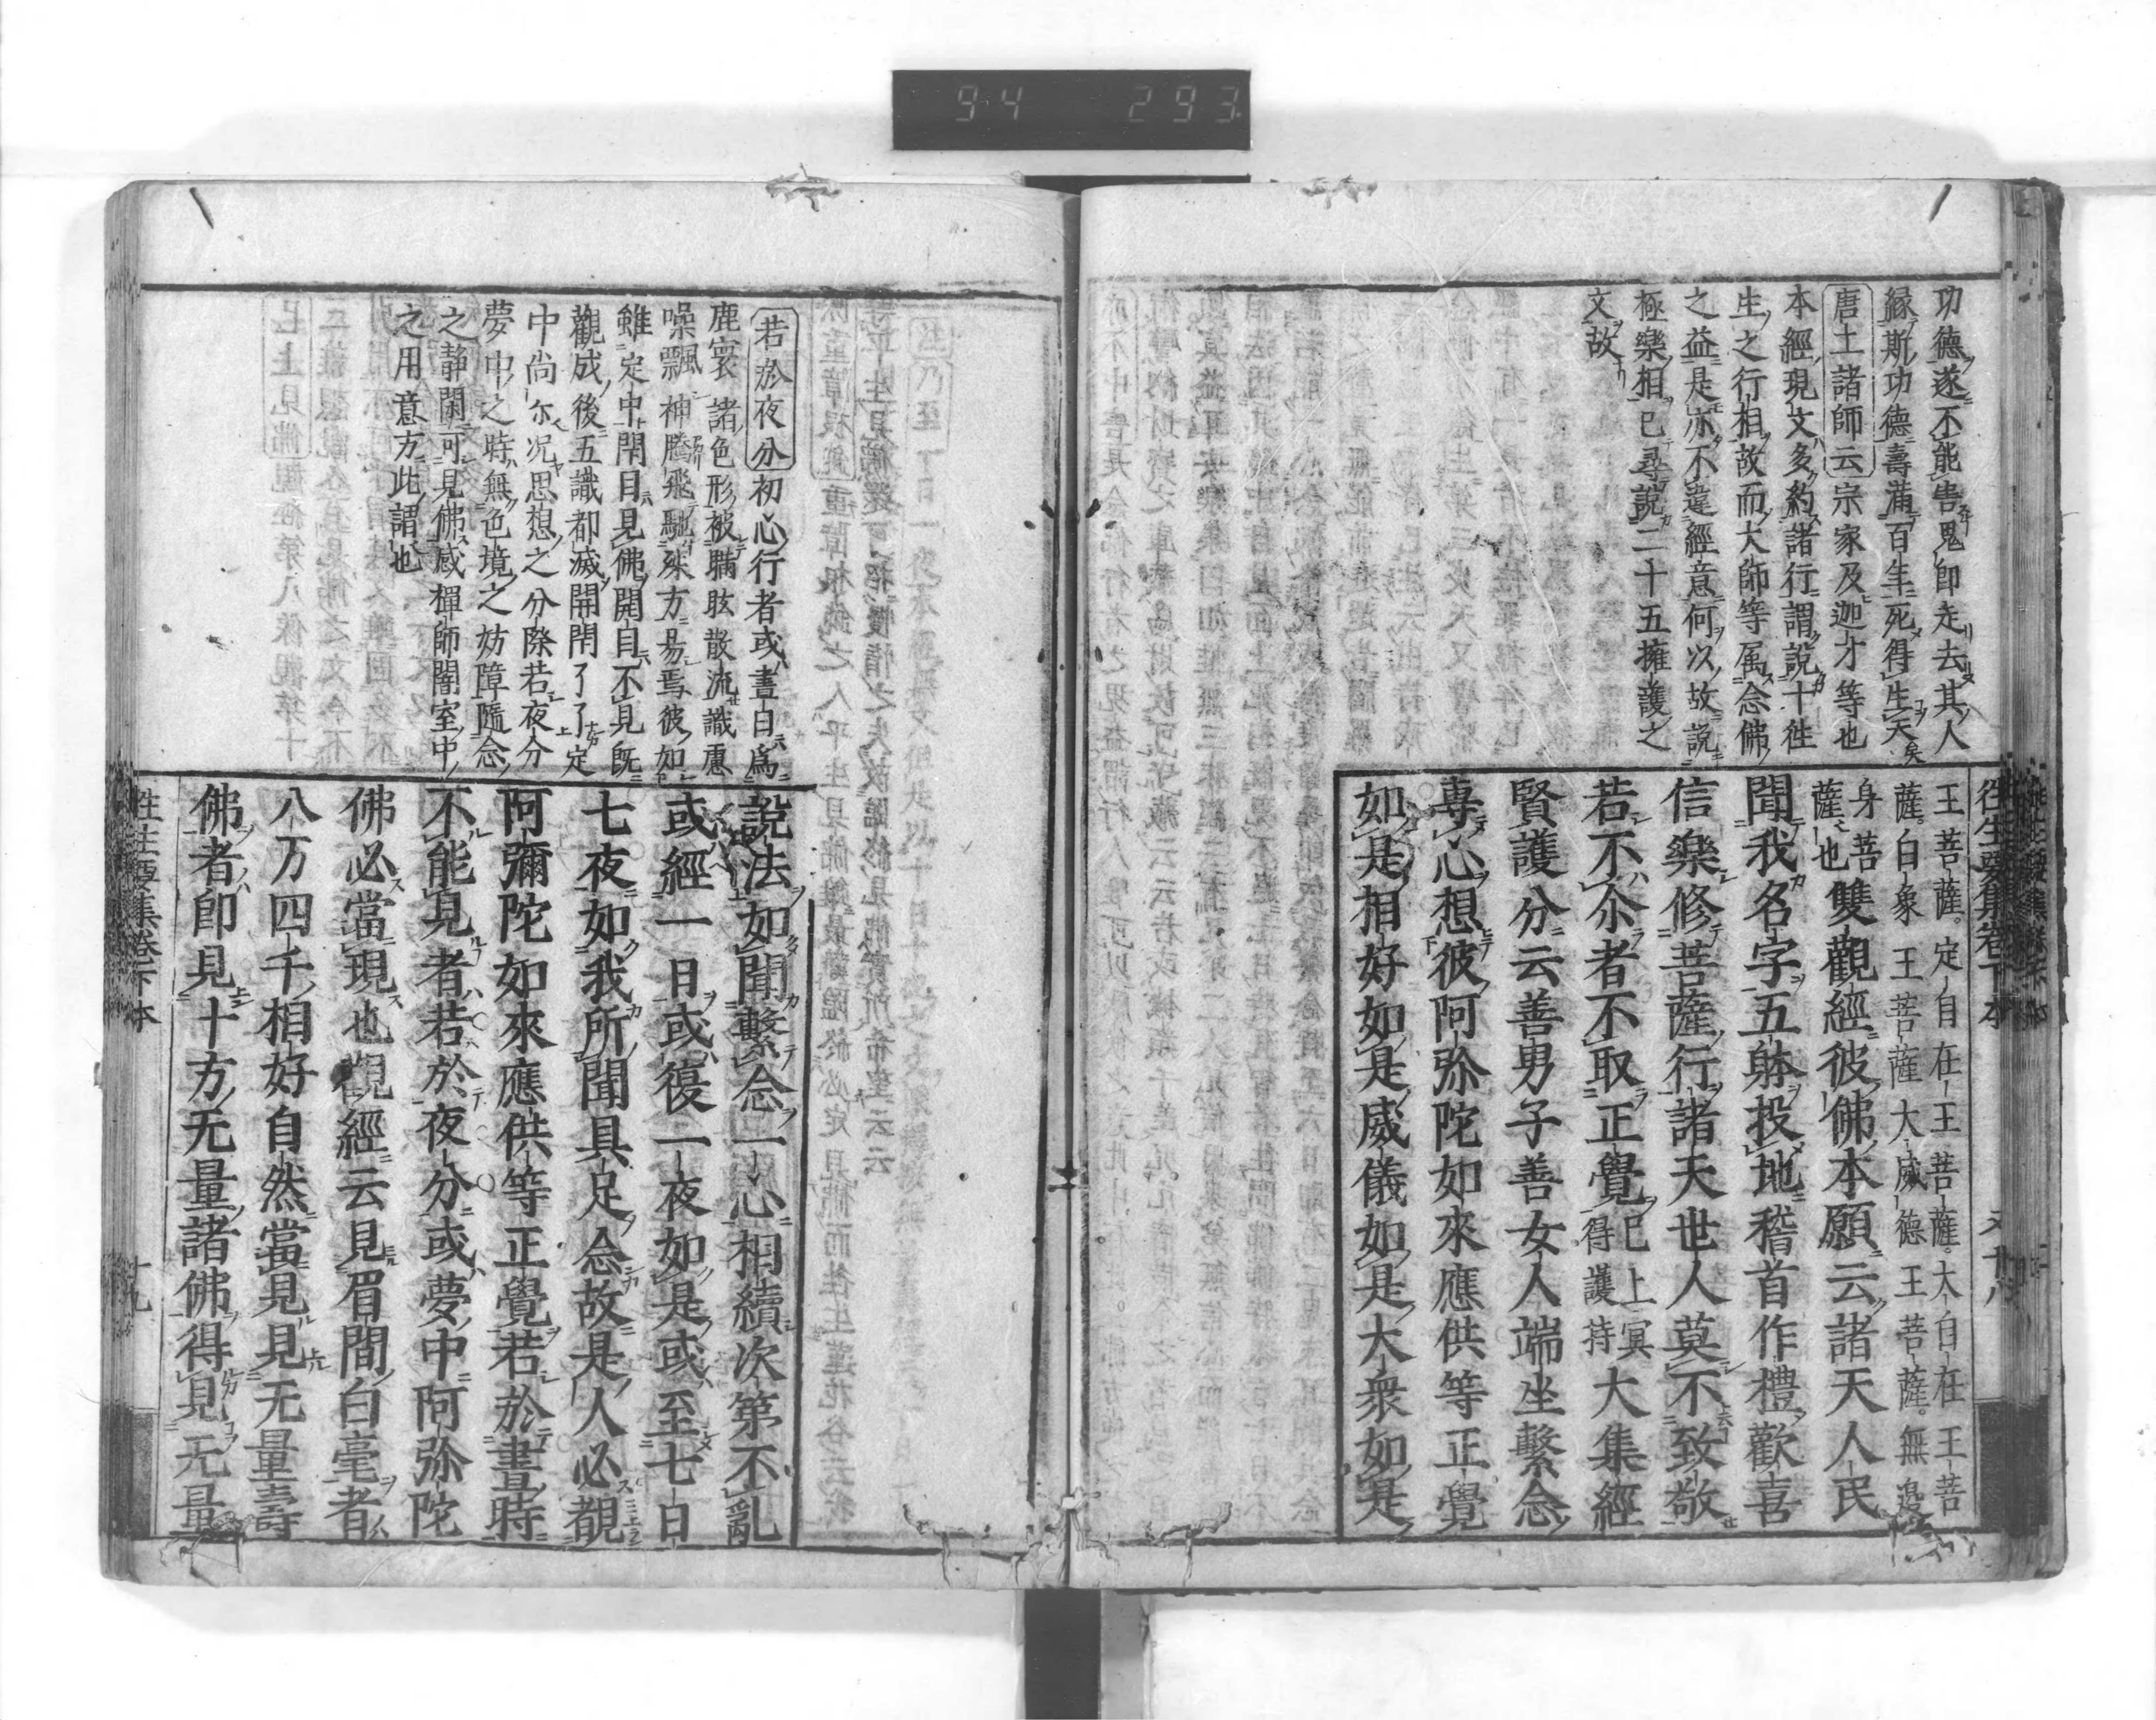 94 293
功德遂不能害鬼即走去其人
縁斯功德壽滿百年死得生天矣
唐土諸師云宗家及迦才等也
本經現文多約諸行謂說十往
生之行相故而大師等属念佛
之益是亦不違經意何以故說
極樂相已尋說二十五擁護之
文故
往生要集卷下本
王菩薩。定自在王菩薩。大自在王菩
薩。白象王菩薩大威德王菩薩。無邊
身菩
薩也
雙觀經彼佛本願云諸天人民
聞我名字五躰投地稽首作禮歡喜
信樂修菩薩行諸天世人莫不致敬
若不尒者不取正覺已上冥得護持大集經
賢護分云善男子善女人端坐繫念
專心想彼阿弥陀如來應供等正覺
如是相好如是威儀如是大衆如是
若於夜分初心行者或晝日爲
鹿寰諸色形被瞞眩散流識慮
噪飄神騰飛馳殊方易焉彼如
雖定中閇目見佛開目不見既
觀成後五識都滅開閇了了定
中尚尒况思想之分際若夜分
夢中之時無色境之妨障隨念
之静閑可見佛感禪師闇室中
之用意方此謂也
說法如聞繫念一心相續次第不亂
或經一日或復一夜如是或至七日
七夜如我所聞具足念故是人必覩
阿彌陀如來應供等正覺若於晝時
不能見者若於夜分或夢中阿弥陀
佛必當現也觀經云見眉間白毫者
八万四千相好自然當見見无量壽
佛者即見十方无量諸佛得見无量
往生要集卷下本
十九